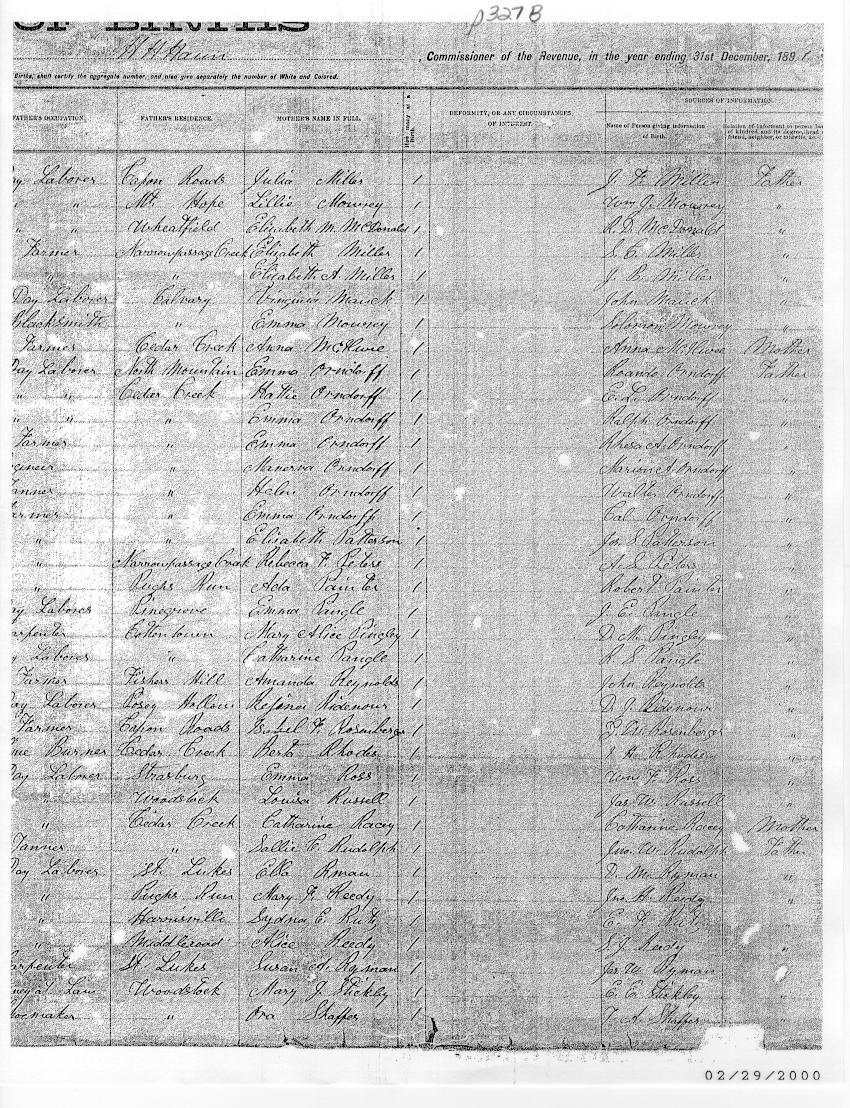 p327B
OF BIRTHS
H H Haun , Commissioner of the Revenue, in the year ending 31st December, 189
Births, shall certify the aggregate number, and also give separately the number of White and Colored.
SOURCES OF INFORMATION.
FATHER'S OCCUPATION. FATHER'S RESIDENCE. MOTHER'S NAME IN FULL. How many at a Birth. DEFORMITY, OR ANY CIRCUMSTANCES OF INTEREST. Name of Person giving information of Birth. Relation of informant to person
of kindred, and its degree, head
friend, neighbor, or midwife, &c.
ay Laborer Capon Roads Julia Miller 1 J. F. Miller Father
" " Mt. Hope Lillie Mowrey 1 Wm J. Mowrey "
" " Wheatfield Elizabeth M. McDonald 1 R. D. McDonald "
Farmer Narrowpassage Creek Elizabeth Miller 1 S. C. Miller "
" " Elizabeth A. Miller 1 J. B. Miller "
Day Laborer Calvary Virginia Mauck 1 John Mauck "
Blacksmith " Emma Mowrey 1 Solomon Mowrey "
Farmer Cedar Creek Anna McKwie 1 Anna McKwie Mother
Day Laborer North Mountain Emma Orndorff 1 Orndorff Father
" " Cedar Creek Hattie Orndorff 1 Orndorff "
" " " Emma Orndorff 1 Ralph Orndorff "
Farmer " Emma Orndorff 1 Rhesa A. Orndorff "
gineer " Manerva Orndorff 1 Marion A. Orndorff "
anner " Helen Orndorff 1 Walter Orndorff "
armer " Emma Orndorff 1 Cal Orndorff "
" " Elizabeth Patterson 1 Jos S. Patterson "
" Narrowpassage Creek Rebecca F. Peters 1 A. S. Peters "
" Pughs Run Ada Painter 1 Robert Painter "
ay Laborer Pinegrove Emma Pangle 1 J. E. Pangle "
arpenter Cottontown Mary Alice Pingley 1 D. M. Pingley "
y Laborer " Catharine Pangle 1 R. S. Pangle "
Farmer Fishers Hill Amanda Reynolds 1 John Reynolds "
Day Laborer Posey Hollow Refina Ridenour 1 D. J. Ridenour "
Farmer Capon Roads Isabel F. Rosenberger 1 Rosenberger "
me Burner Cedar Creek Berta Rhodes 1 H. Rhodes "
Day Laborer Strasburg Emma Ross 1 Wm F. Ross "
" Woodstock Louisa Russell 1 Jas. W. Russell "
" Cedar Creek Catharine Racey 1 Catharine Racey Mother
Tanner " Sallie C. Rudolph 1 Jno. W. Rudolph Father
Day Laborer St. Lukes Ella Ryman 1 D. M. Ryman "
" Pughs Run Mary F. Reedy 1 Jno. H. Reedy "
" Harrisville Sydna E. Rutz 1 E. F. Rutz "
" Middleroad Alice Reedy 1 S. J. Reedy "
arpenter St. Lukes Susan A. Ryman 1 Jas W. Ryman "
ney at Law Woodstock Mary J. Stickley 1 E. E. Stickley "
oemaker " Ora Shaffer 1 T. A. Shaffer "
02/29/2000